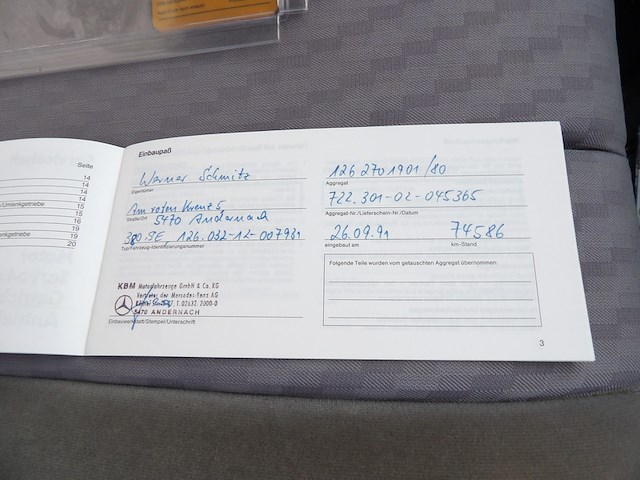 Seite
14
14
14
15
15
16
19
20
Einbaupaß
Werner Schmitz
Eigentümer
Am roten Kreuz 5
Straße/Ort 5470 Andernach
380 SE, 126.032-12-007981
Typ/Fahrzeug-Identifizierungsnummer
KBM Motorfahrzeuge GmbH & Co. KG
Vertreter der Mercedes-Benz AG
T.02632, 2000-0
5470 ANDERNACH
Einbauwerkstatt/Stempel/Unterschrift
126 270 1901/80
Aggregat
722.301-02-045365
Aggregat-Nr./Lieferschein-Nr./Datum
26.09.91 74586
eingebaut am km-Stand
Folgende Teile wurden vom getauschten Aggregat übernommen:
3